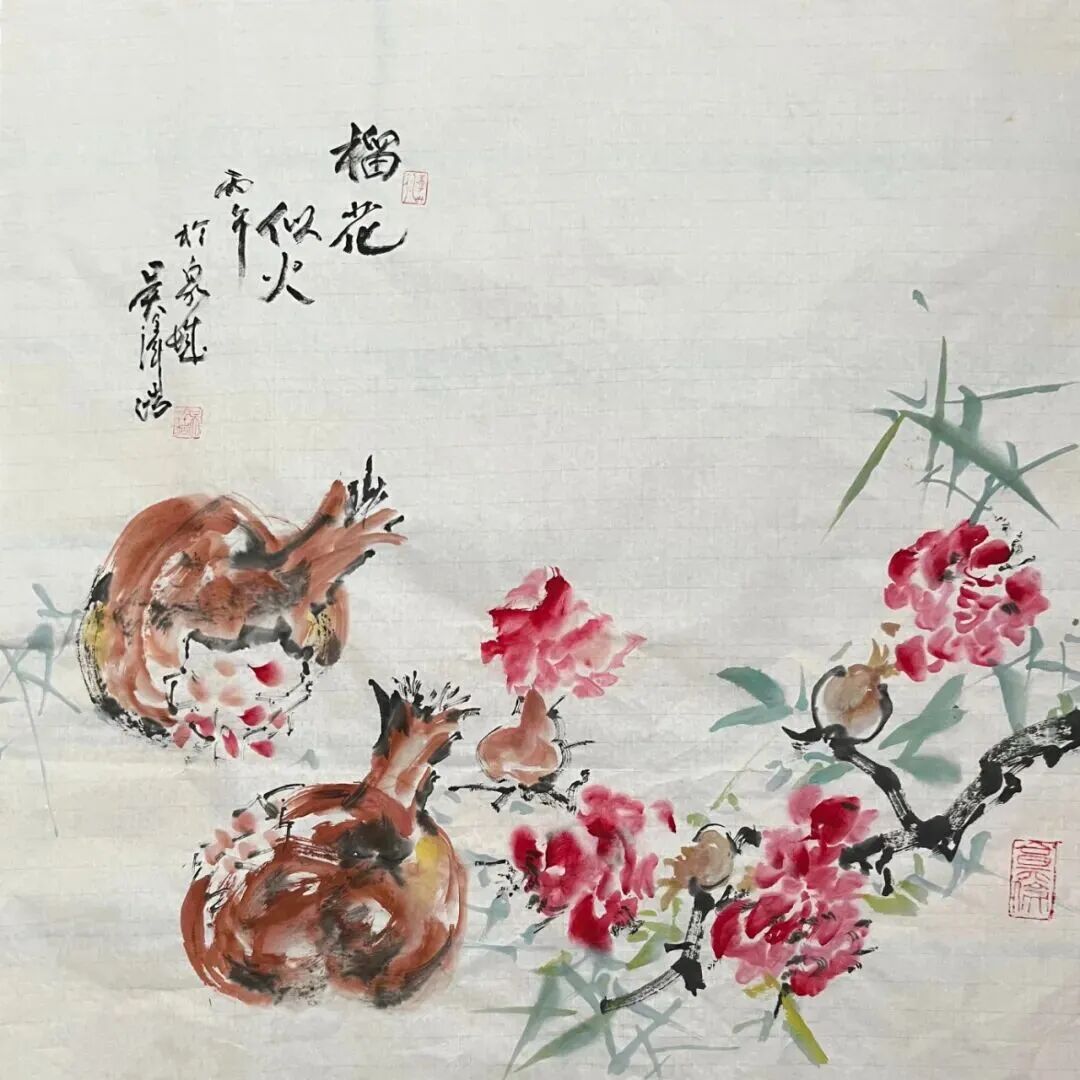 榴花
似火
丙午
於泉城
吴泽浩